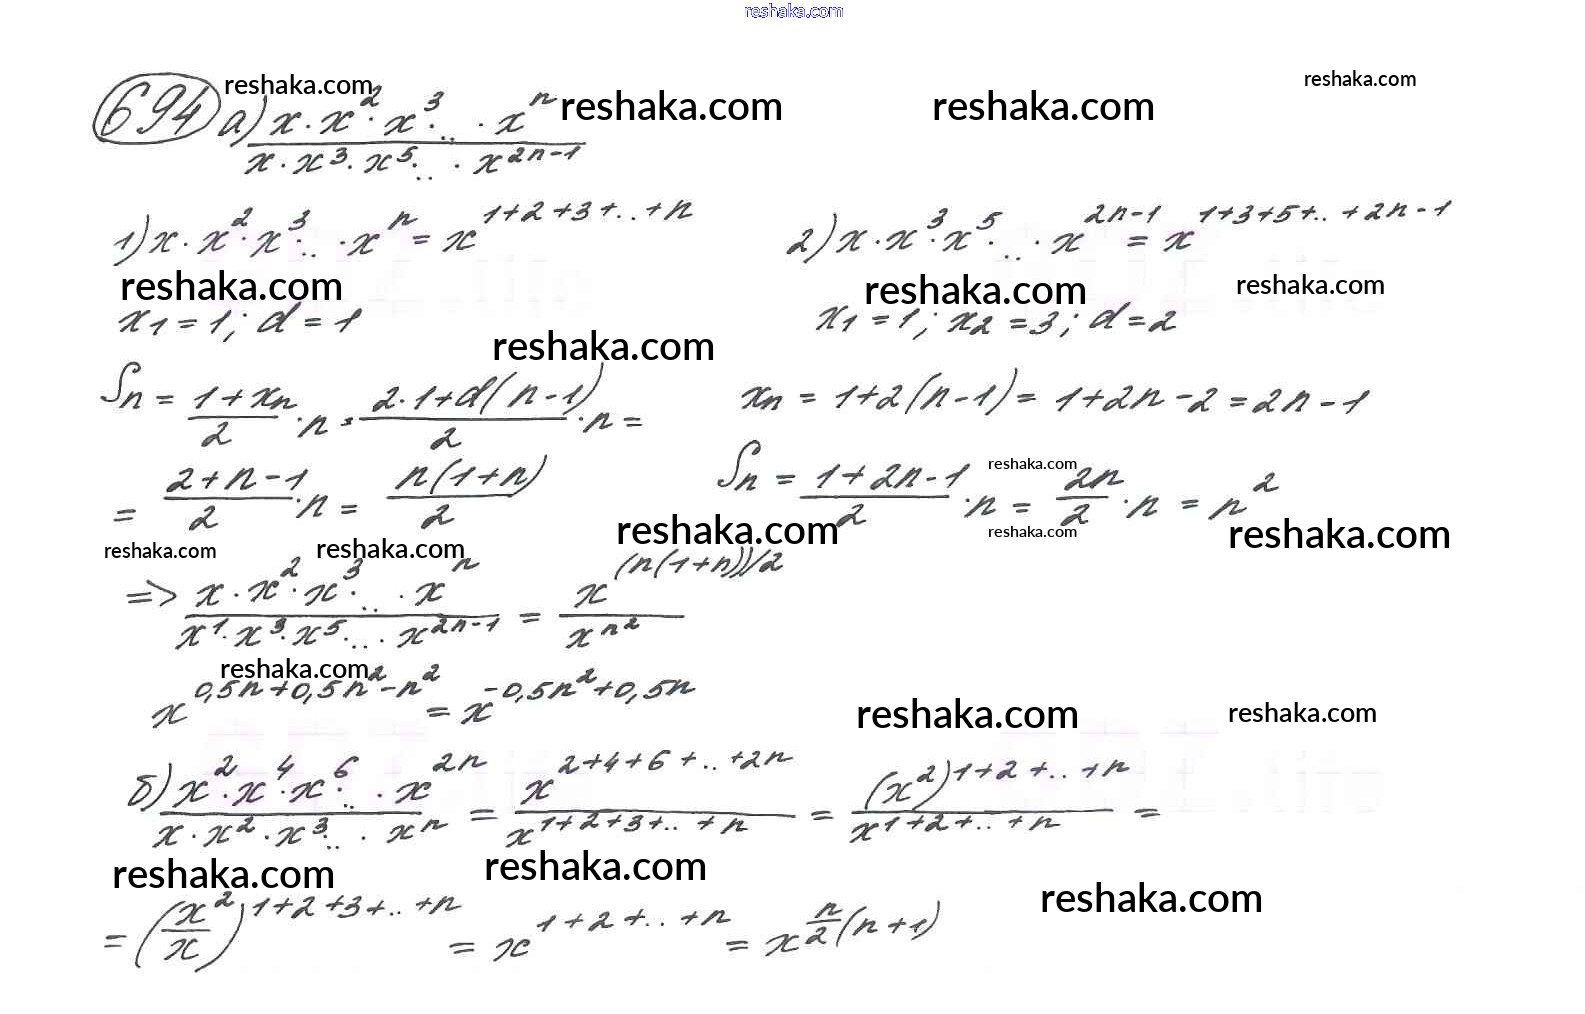 reshaka.com
694 а) (x · x² · x³ · .. · xⁿ) / (x · x³ · x⁵ · .. · x^(2n-1))
reshaka.com reshaka.com reshaka.com reshaka.com
1) x · x² · x³ · .. · xⁿ = x^(1+2+3+..+n)
2) x · x³ · x⁵ · .. · x^(2n-1) = x^(1+3+5+..+2n-1)
reshaka.com reshaka.com reshaka.com
x₁ = 1; d = 1
x₁ = 1; x₂ = 3; d = 2
reshaka.com
Sn = (1 + xn)/2 · n = (2·1 + d(n-1))/2 · n =
xn = 1+2(n-1) = 1+2n-2 = 2n-1
= (2+n-1)/2 · n = n(1+n)/2
Sn = (1+2n-1)/2 · n = 2n/2 · n = n²
reshaka.com reshaka.com reshaka.com reshaka.com
reshaka.com reshaka.com
=> (x · x² · x³ · .. · xⁿ) / (x¹ · x³ · x⁵ · .. · x^(2n-1)) = x^((n(1+n))/2) / x^(n²)
reshaka.com
x^(0,5n+0,5n²-n²) = x^(-0,5n²+0,5n)
reshaka.com reshaka.com
б) (x² · x⁴ · x⁶ · .. · x^(2n)) / (x · x² · x³ · .. · xⁿ) = x^(2+4+6+..+2n) / x^(1+2+3+..+n) = (x²)^(1+2+..+n) / x^(1+2+..+n) =
reshaka.com reshaka.com reshaka.com
= (x²/x)^(1+2+3+..+n) = x^(1+2+..+n) = x^(n/2(n+1))